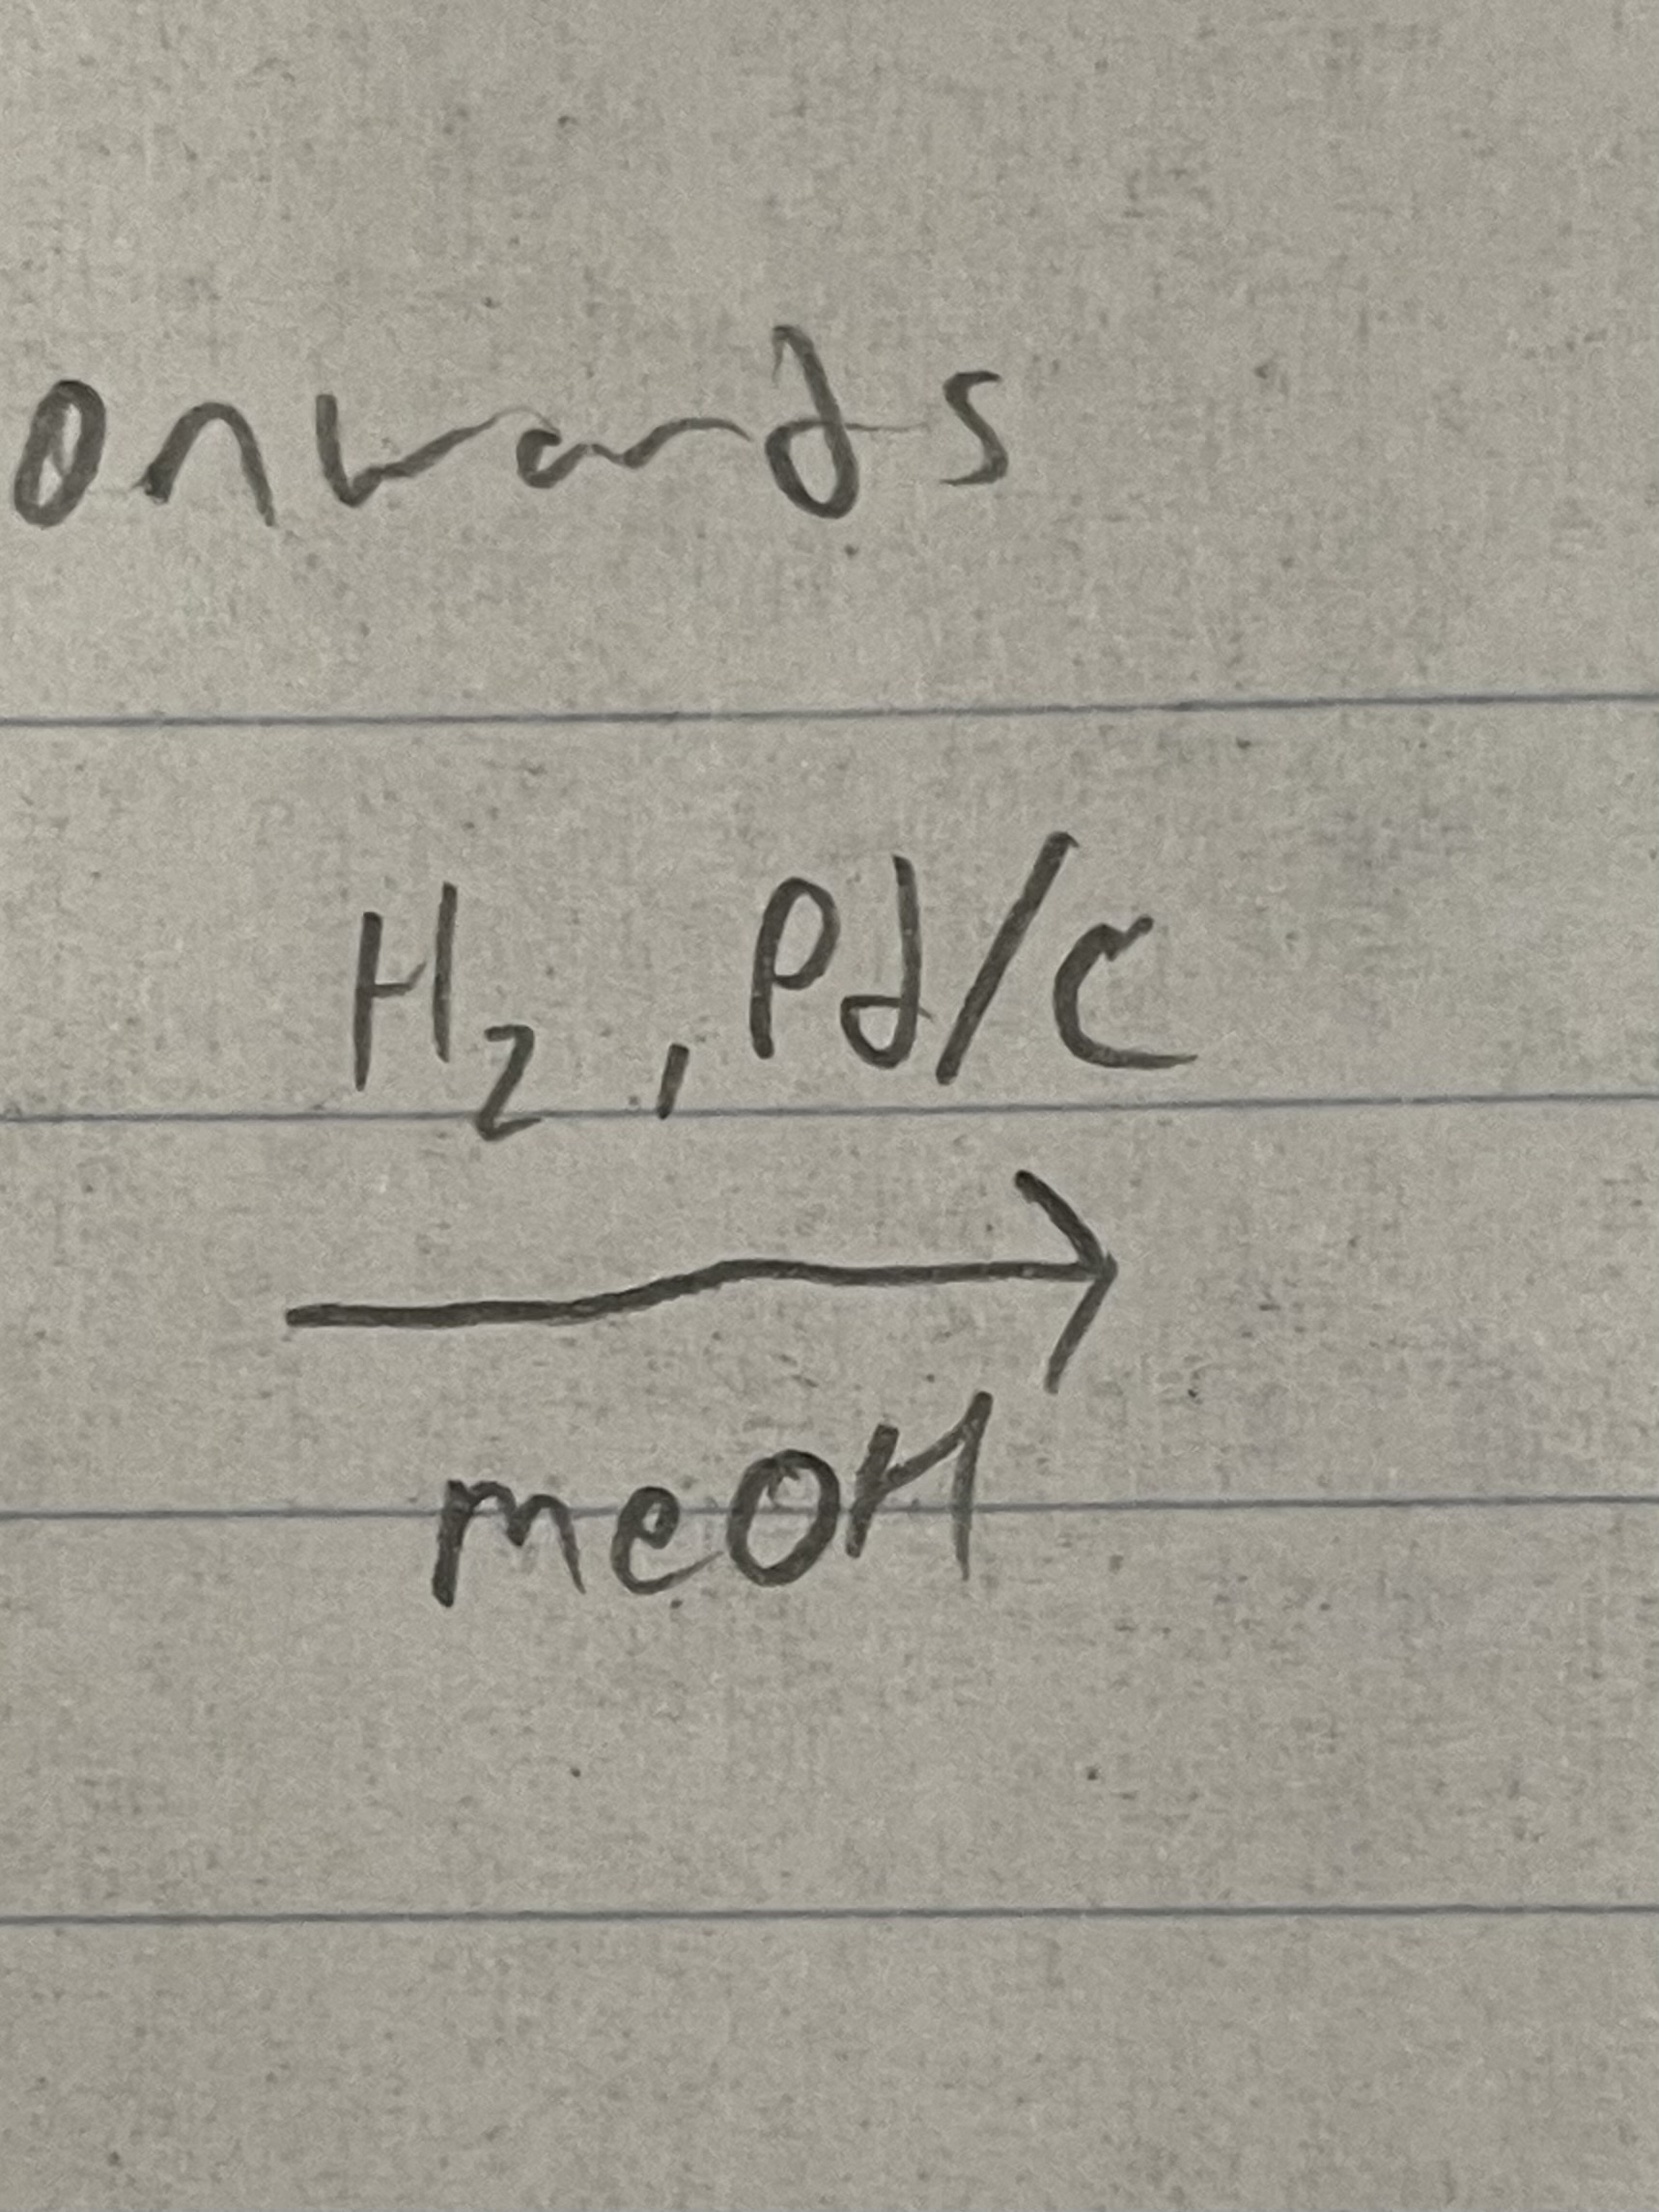 onwards
H₂, Pd/C
→
meOH